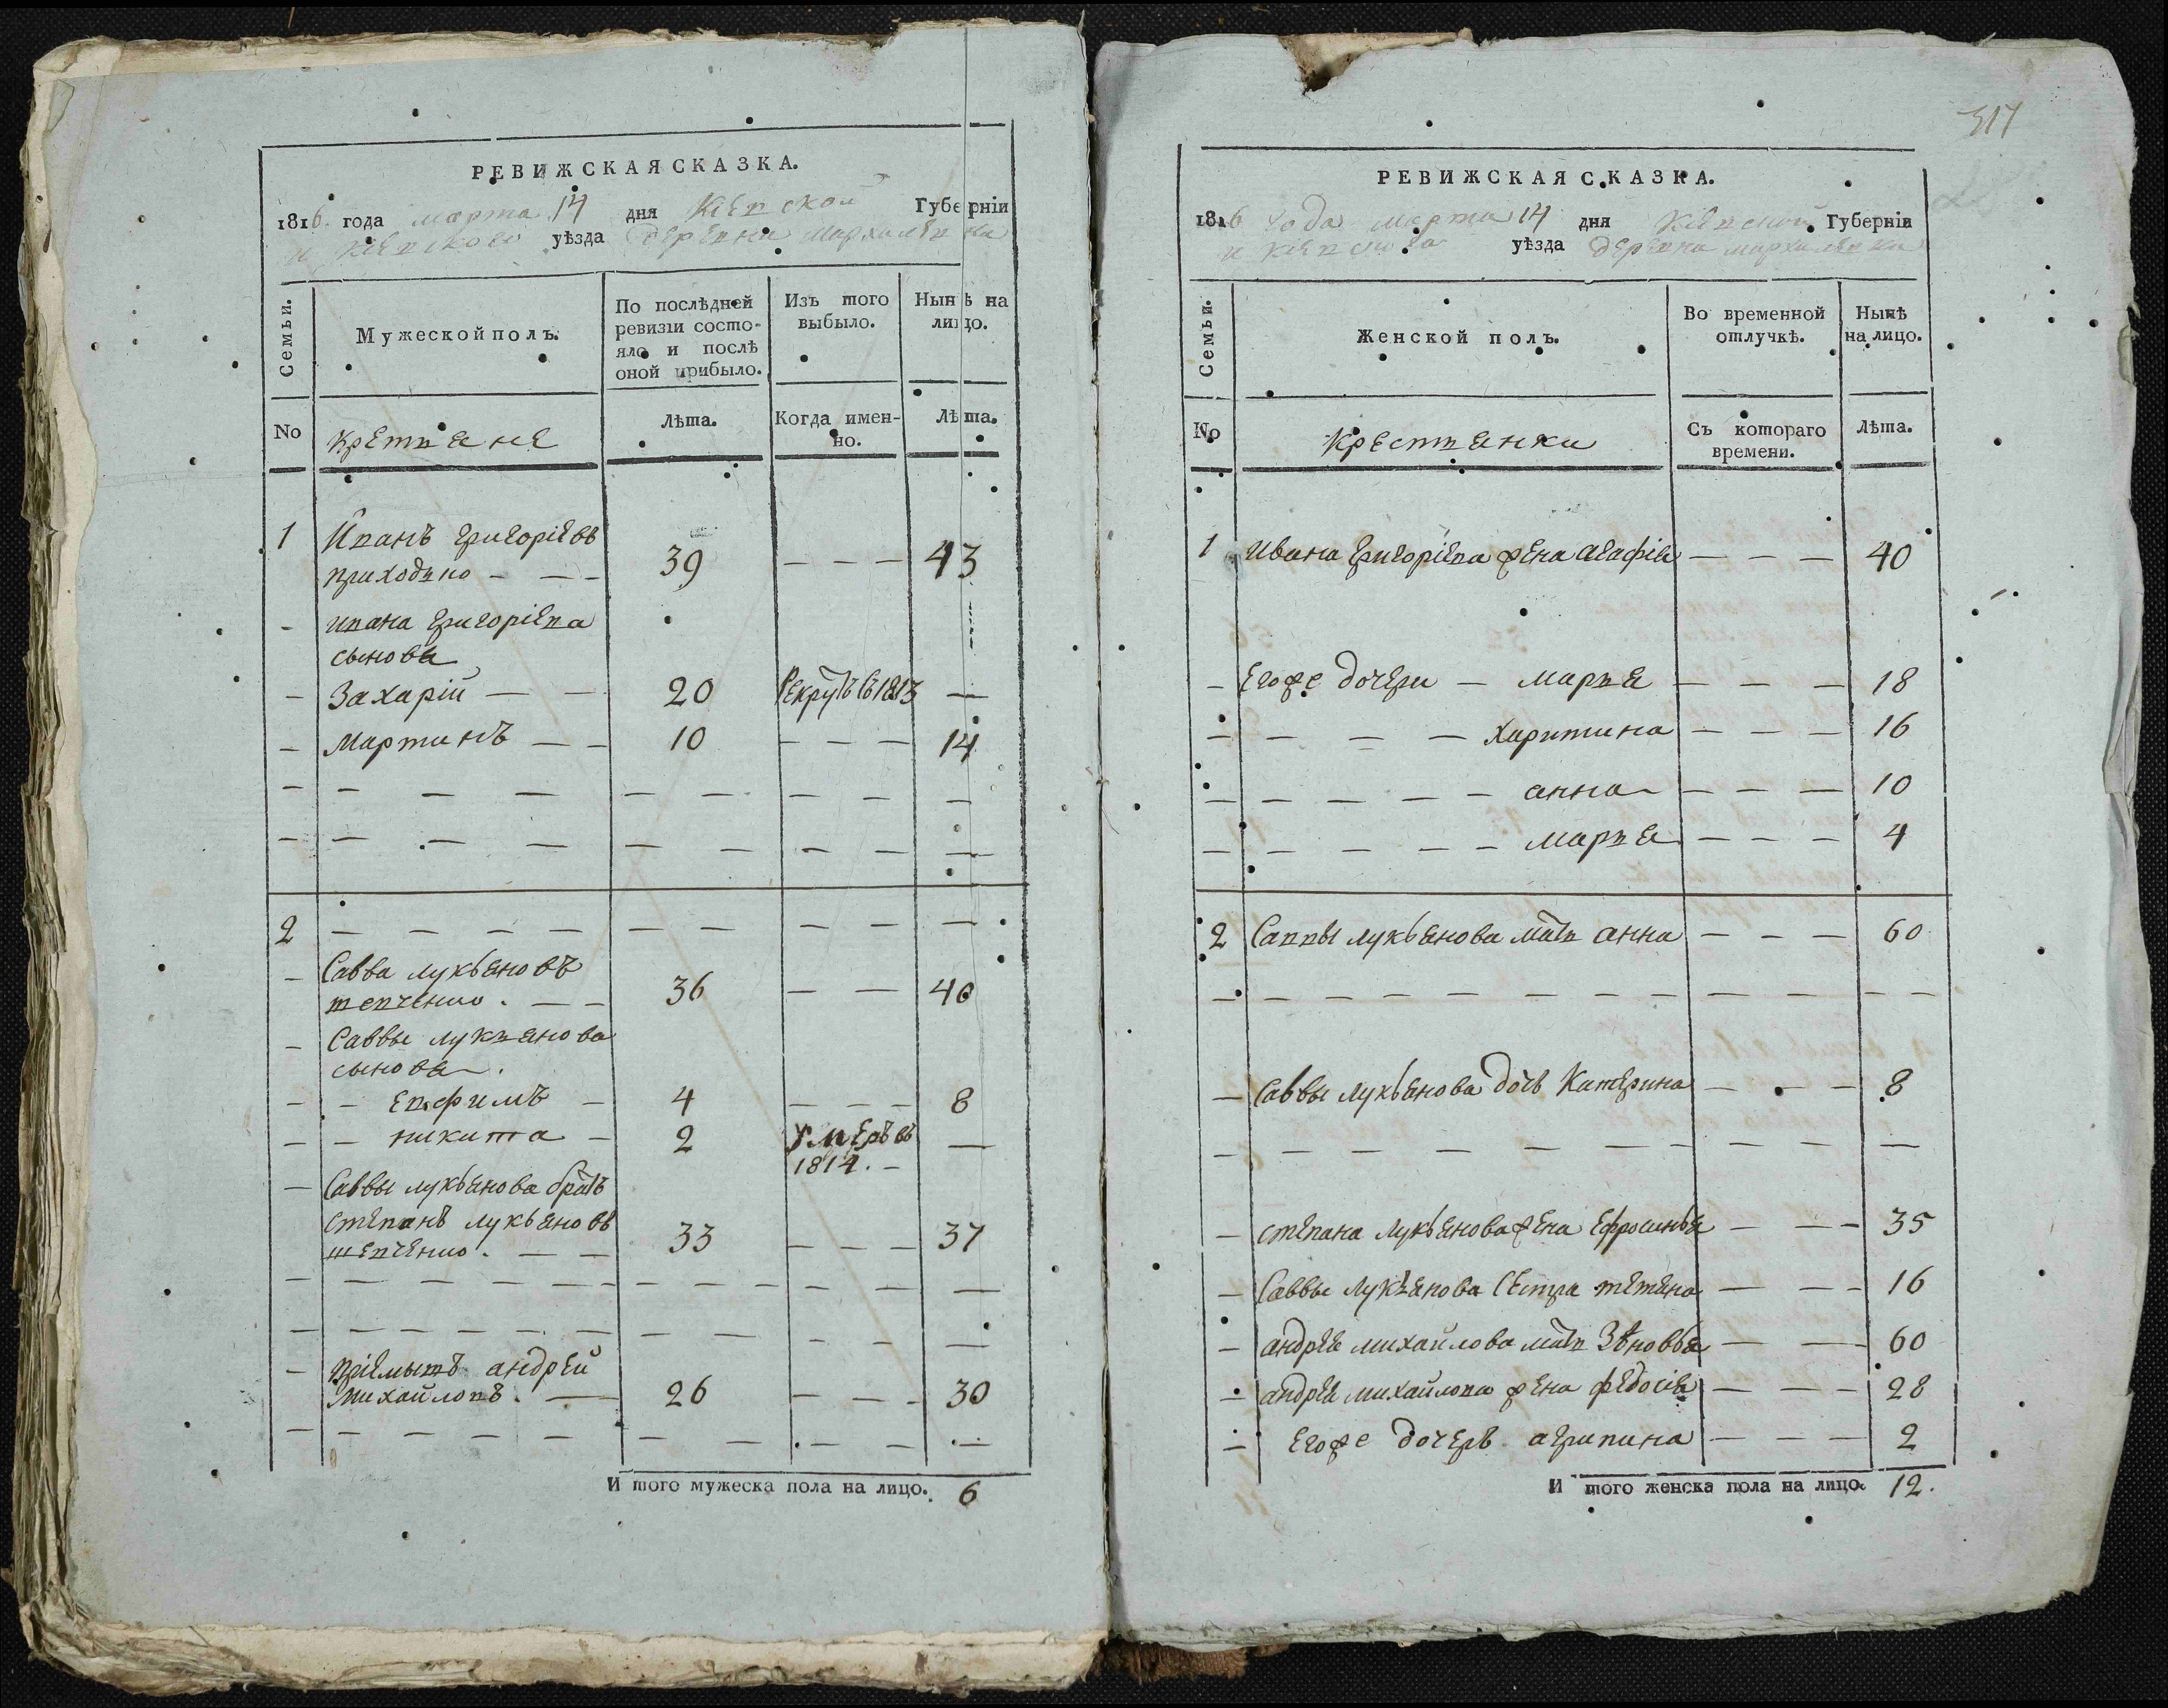 РЕВИЖСКАЯ СКАЗКА.
1816. года марта 14 дня Кіевской Губерніи
и Кіевского уѣзда деревни Мархалевки
Семьи.
Мужеской полъ.
По послѣдней ревизіи состояло и послѣ оной прибыло.
Изъ того выбыло.
Нынѣ на лицо.
No
крестьяне
Лѣта.
Когда именно.
Лѣта.
1 Иванъ Григоріевъ
приходько - - - 39 - - - 43
- ивана Григоріева
сыновья
- Захарій - - 20 Рекрутъ въ 1813 -
- Мартинъ - - 10 - - - 14
2 - - - -
- Савва лукьяновъ
тепченко. - - 36 - - 40
- Саввы лукьянова
сыновья.
- - Евфимъ - 4 - - - 8
- - никита - 2 умеръ въ -
1814. -
- Саввы лукьянова братъ
степанъ лукьяновъ
тепченко. - - 33 - - - 37
- пріемышъ андрей
Михайловъ. - 26 - - - 30
И того мужеска пола на лицо. 6
317
РЕВИЖСКАЯ СКАЗКА.
1816 года марта 14 дня Кіевской Губерніи
и Кіевского уѣзда деревни мархалевки
Семьи.
Женской полъ.
Во временной отлучкѣ.
Нынѣ на лицо.
No
Крестьянки
Съ котораго времени.
Лѣта.
1 Ивана Григоріева жена агафія - - - 40
- Егоже дочери - марья - - - 18
- - - - харитина - - - 16
- - - - - анна - - - 10
- - - - - марья - - - 4
2 Саввы лукьянова мать анна - - - 60
- Саввы лукьянова дочь Катерина - - - 8
- степана лукьянова жена Ефросинья - - - 35
- Саввы лукьянова сестра тетяна - - - 16
- андрея михайлова мать Зѣновья - - - 60
- андрея михайлова жена федосія - - - 28
- Егоже дочерь агрипина - - - 2
И того женска пола на лицо. 12.